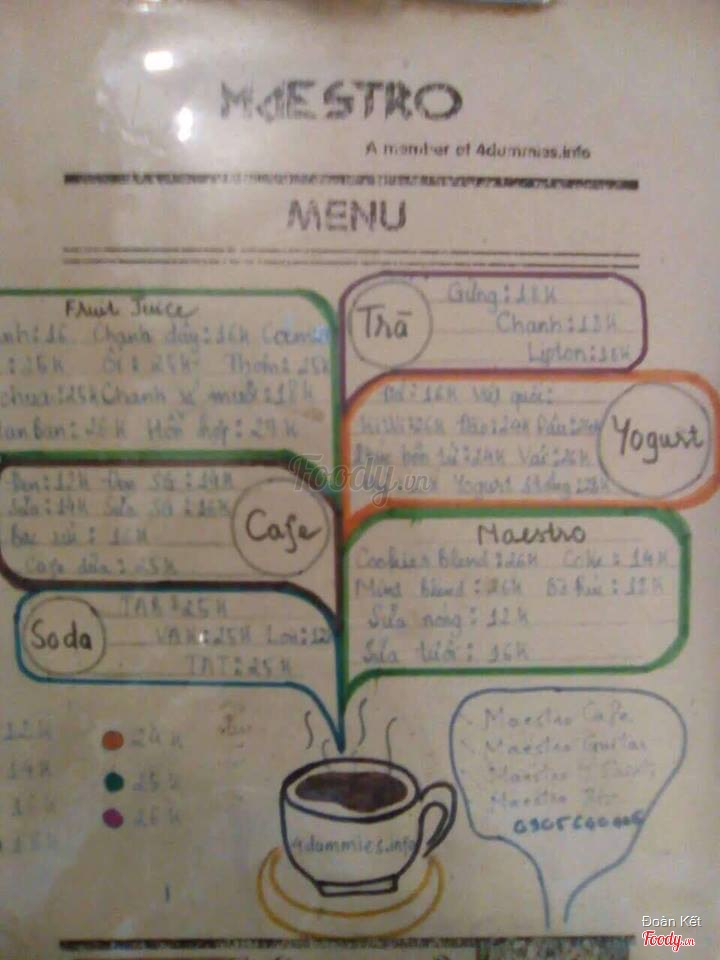 MAESTRO
A member of 4dummies.info
MENU
Fruit Juice
anh:16 Chanh dây:16K Cam
:25K Ổi:25K Thơm:25K
chua:25K Chanh xí muội:18K
26K Hỗn hợp:27K
Trà
Gừng:18K
Chanh:18K
Lipton:18K
Yogurt
Đá:16K Việt quất:
KiWi:26K Đào:24K Dâu:24K
24K Vải:26K
Yogurt
Cafe
Đen:12K Đen SG:14K
Sữa:14K Sữa SG:16K
Bạc xỉu:16K
Cafe dừa:25K
Maestro
Cookies Blend:26K Coke:14K
Mint Blend:26K Bò Húc:12K
Sữa nóng:12K
Sữa tươi:16K
Soda
TAR:25K
VAK:25K Lon:12K
TAT:25K
12K
14K
16K
18K
24K
25K
26K
Maestro Cafe
Maestro Guitar
Maestro
Maestro
4dummies.info
Foody.vn
Đoàn Kết
Foody.vn